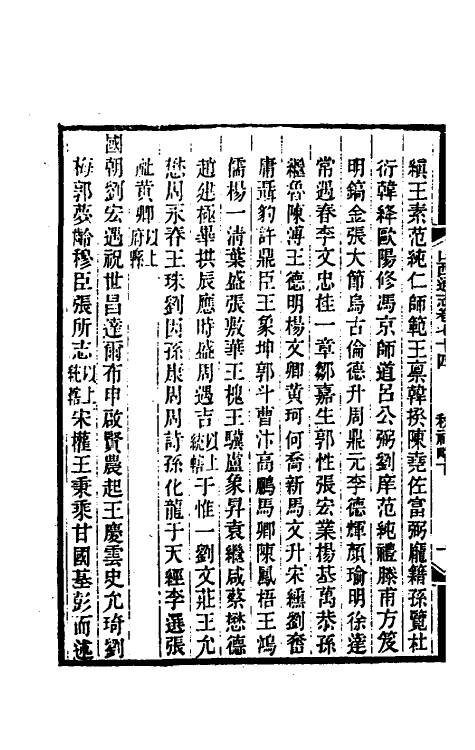 縝王素范純仁師範王稟韓揆陳堯佐富弼龐籍孫覽杜
衍韓絳歐陽修馮京師道呂公弼劉庠范純禮滕甫方笈
明鎬金張大節烏古倫德升周鼎元李德輝顏瑜明徐達
常遇春李文忠桂一章鄒嘉生郭性張宏業楊基萬恭孫
繼魯陳溥王德明楊文卿黃珂何喬新馬文升宋纁劉畬
庸聶豹許鼎臣王象坤郭斗曹汴高鵬馬卿陳鳳梧王鴻
儒楊一清葉盛張敷華王槐王驥盧象昇袁繼咸蔡懋德
趙建極畢拱辰應時盛周遇吉以上統轄于惟一劉文莊王允
懋周永春王珠劉因孫康周周詩孫化龍于天經李選張
祉黃卿以上府縣
國朝劉宏遇祝世昌達爾布申啟賢農起王慶雲史允琦劉
梅郭蔡穆臣張所志以上統轄宋權王秉乘甘國基彭而述
山西通志卷七十四 秩祀略下 一